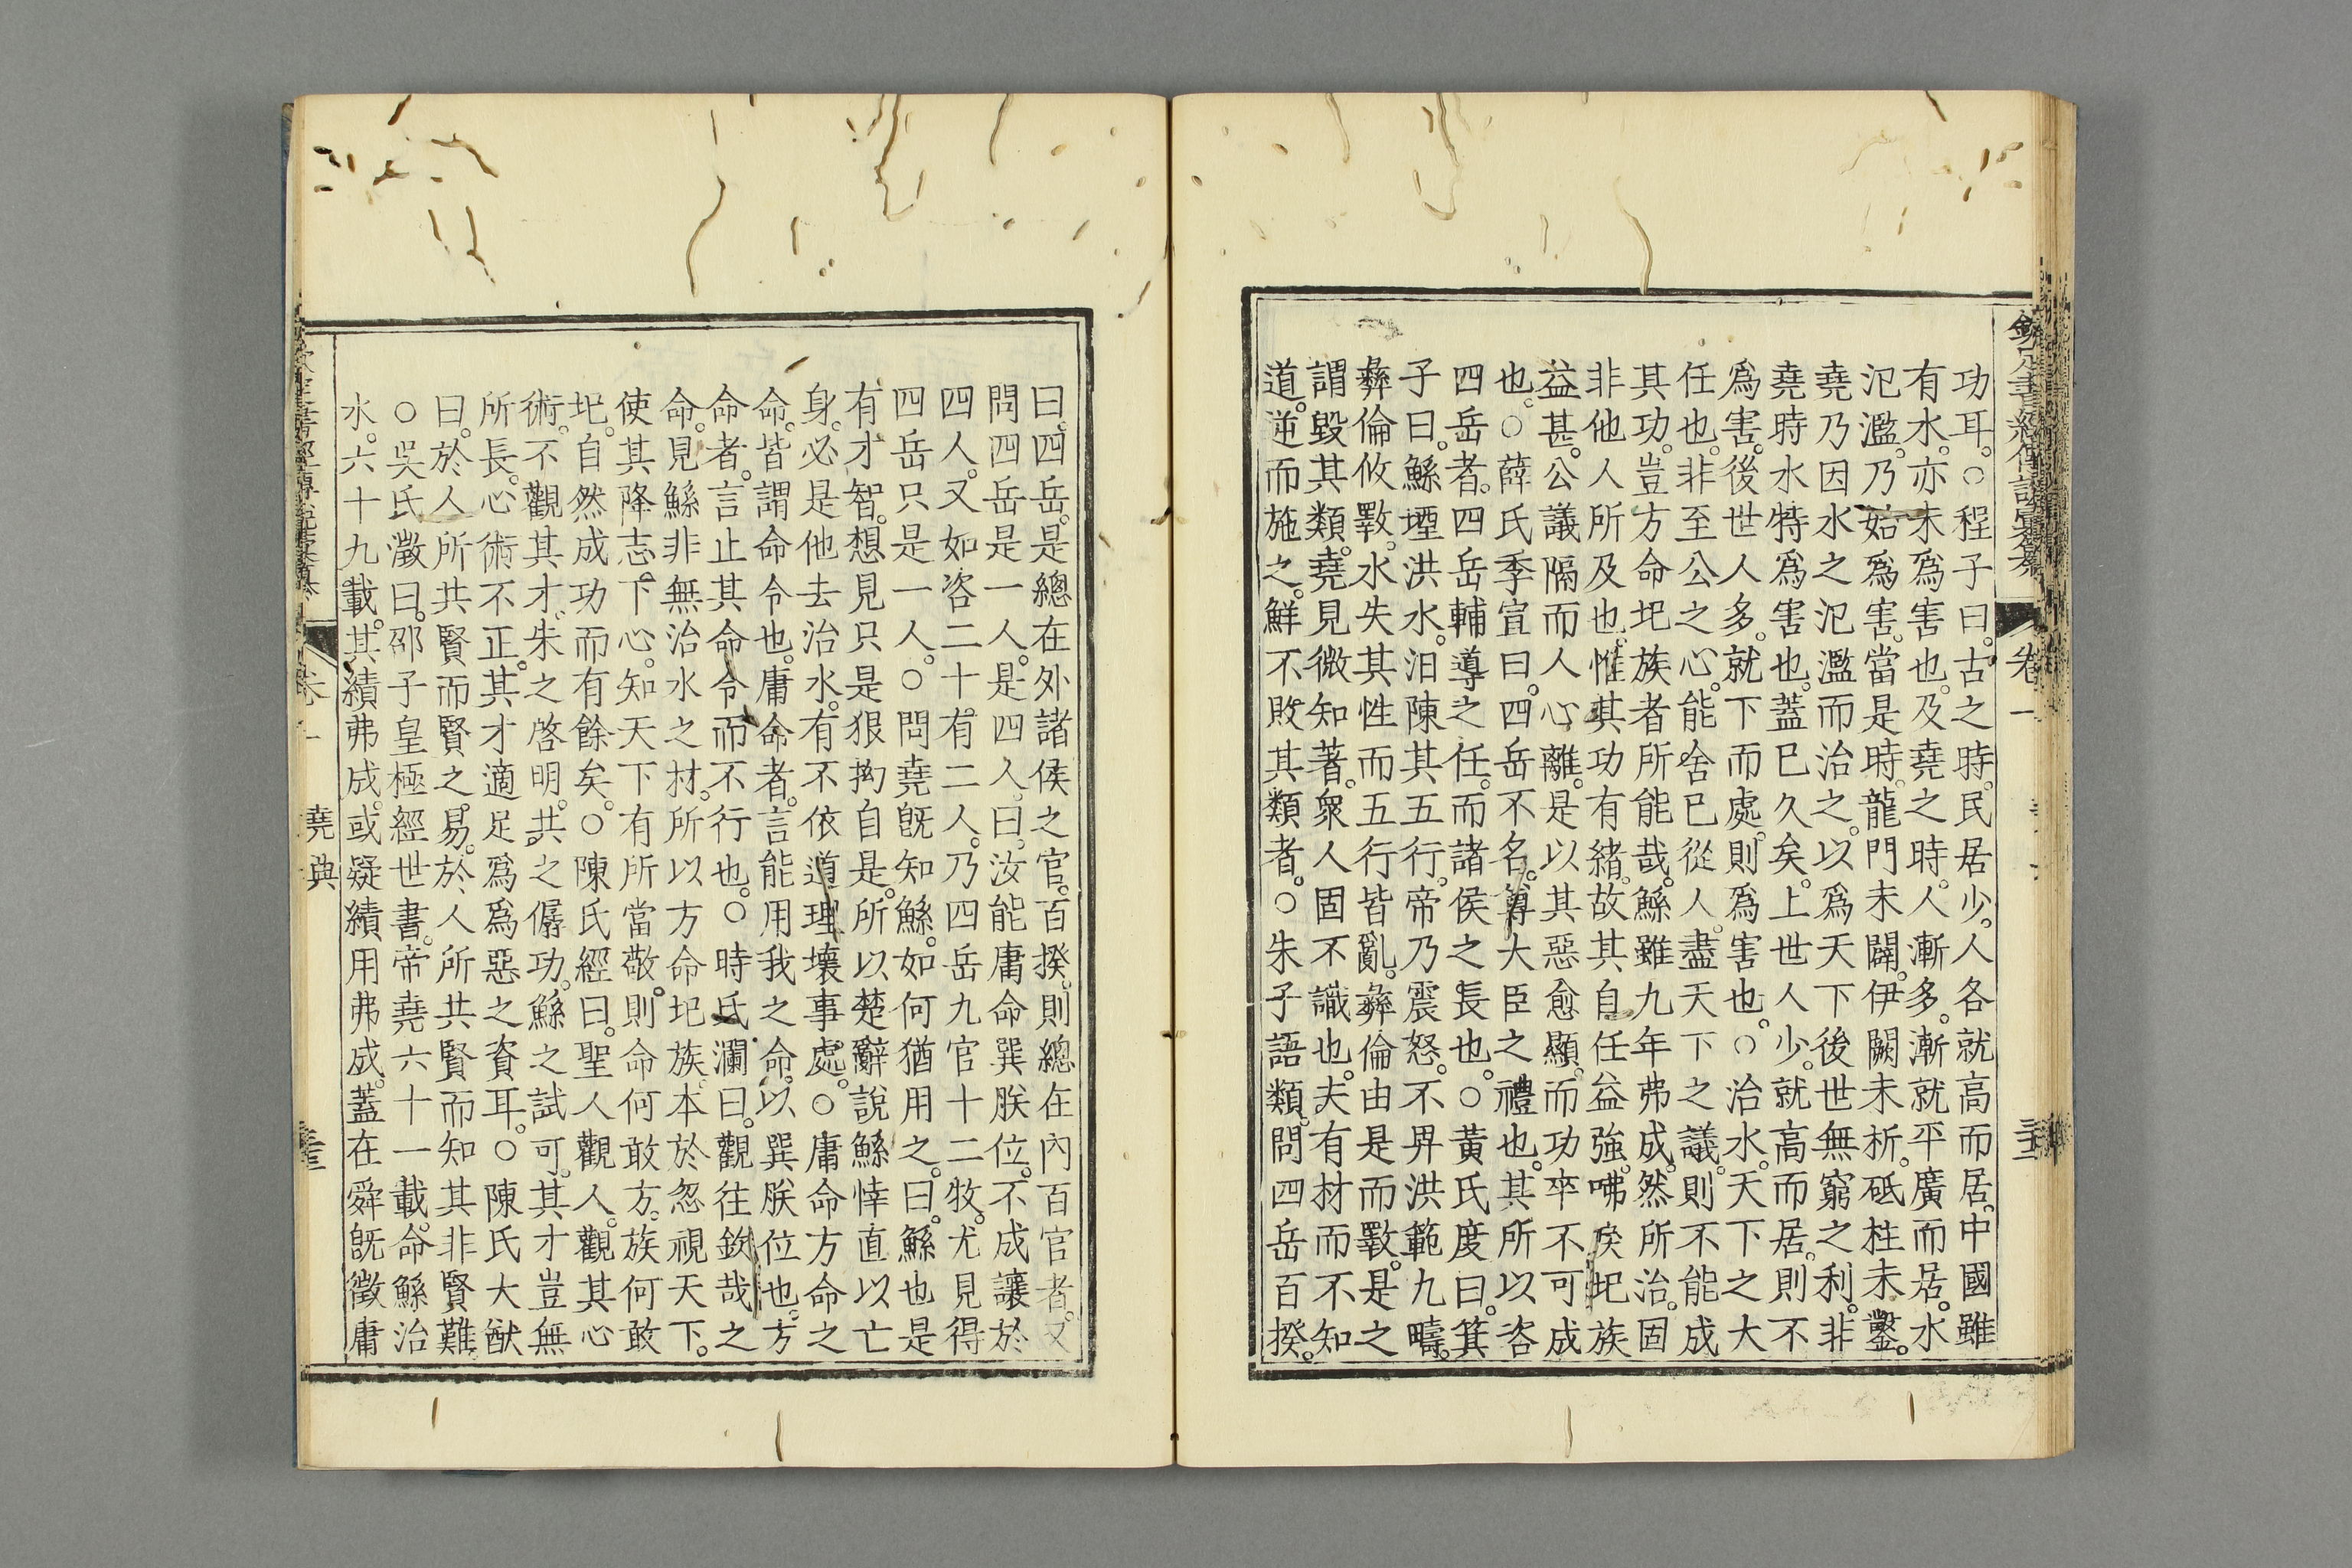 功耳。○程子曰。古之時。民居少。人各就高而居。中國雖
有水。亦未爲害也。及堯之時。人漸多。漸就平廣而居。水
氾濫。乃始爲害。當是時。龍門未闢。伊闕未析。砥柱未鑿。
堯乃因水之氾濫而治之。以爲天下後世無窮之利。非
堯時水特爲害也。蓋已久矣。上世人少。就高而居。則不
爲害。後世人多。就下而處。則爲害也。○治水。天下之大
任也。非至公之心。能舍已從人。盡天下之議。則不能成
其功。豈方命圯族者所能哉。鯀雖九年弗成。然所治。固
非他人所及也。惟其功有緒。故其自任益強。咈戾圯族
益甚。公議隔而人心離。是以其惡愈顯。而功卒不可成
也。○薛氏季宣曰。四岳不名。尊大臣之禮也。其所以咨
四岳者。四岳輔導之任。而諸侯之長也。○黃氏度曰。箕
子曰。鯀堙洪水。汨陳其五行。帝乃震怒。不畀洪範九疇。
彝倫攸斁。水失其性而五行皆亂。彝倫由是而斁。是之
謂毀其類。堯見微知著。衆人固不識也。夫有材而不知
道。逆而施之。鮮不敗其類者。○朱子語類。問四岳百揆。
曰。四岳。是總在外諸侯之官。百揆。則總在內百官者。又
問四岳是一人。是四人。曰。汝能庸命巽朕位。不成讓於
四人。又如咨二十。有二人。乃四岳九官十二牧。尤見得
四岳只是一人。○問堯旣知鯀。如何猶用之。曰。鯀也是
有才智。想見只是狠拗自是。所以楚辭說鯀悻直以亡
身。必是他去治水。有不依道理壞事處。○庸命方命之
命。皆謂命令也。庸命者。言能用我之命。以巽朕位也。方
命者。言止其命令而不行也。○時氏瀾曰。觀往欽哉之
命。見鯀非無治水之材。所以方命圯族。本於忽視天下。
使其降志下心。知天下有所當敬。則命何敢方。族何敢
圯。自然成功而有餘矣。○陳氏經曰。聖人觀人。觀其心
術。不觀其才。朱之啓明。共之僝功。鯀之試可。其才豈無
所長。心術不正。其才適足爲爲惡之資耳。○陳氏大猷
曰。於人所共賢而賢之。易。於人所共賢而知其非賢難。
○吳氏澂曰。邵子皇極經世書。帝堯六十一載。命鯀治
水。六十九載。其績弗成。或疑績用弗成。蓋在舜旣徵庸
堯典